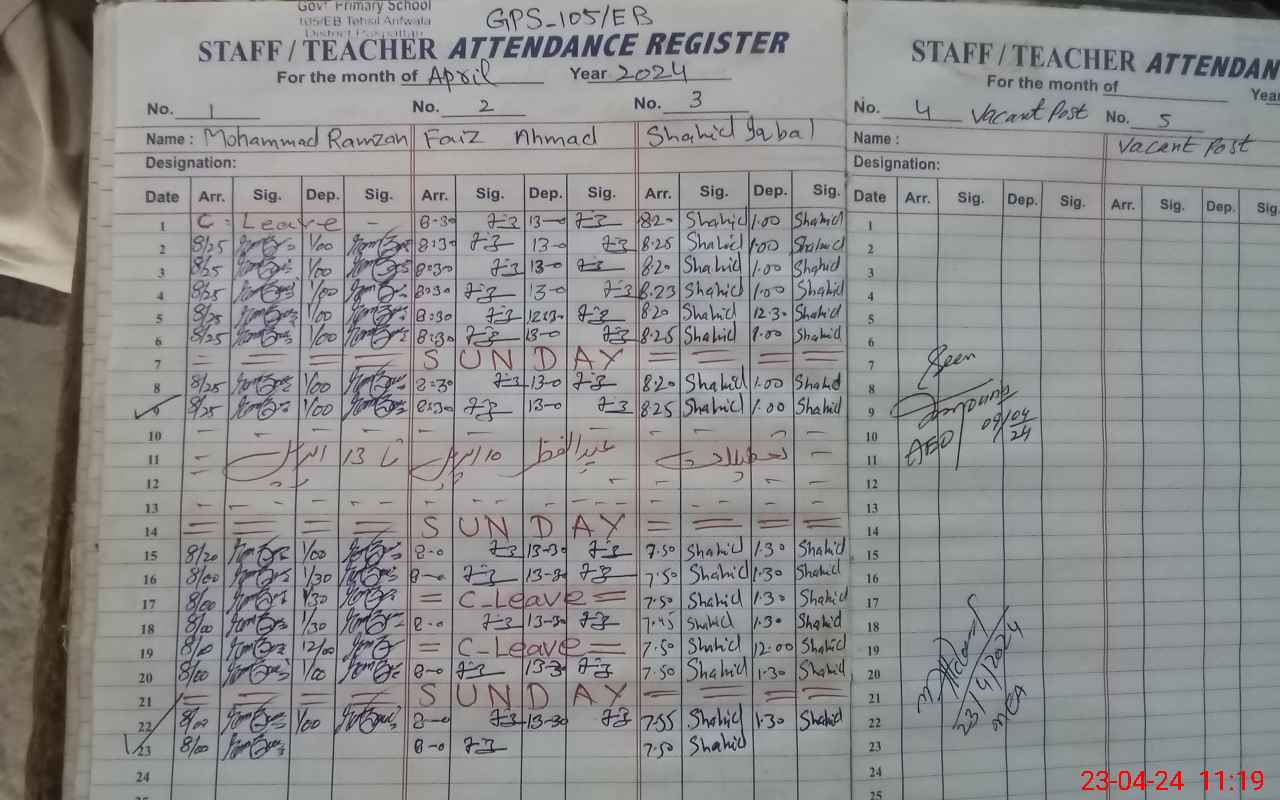 Govt Primary School
105/EB Tehsil Arifwala
District Pakpattan
GPS-105/EB
STAFF / TEACHER ATTENDANCE REGISTER
For the month of April Year 2024
No. 1 No. 2 No. 3
Name : Mohammad Ramzan Faiz Ahmad Shahid Iqbal
Designation:
Date Arr. Sig. Dep. Sig. Arr. Sig. Dep. Sig. Arr. Sig. Dep. Sig.
1 C. Leave - 8-30 13-0 8.20 Shahid 1.00 Shahid
2 8/25 1/00 8:30 13-0 8.25 Shahid 1.00 Shahid
3 8/25 1/00 8:30 13-0 8.20 Shahid 1.00 Shahid
4 8/25 1/00 8:30 13-0 8.23 Shahid 1.00 Shahid
5 8/25 1/00 8:30 12:30 8.20 Shahid 12.30 Shahid
6 8/25 1/00 8:30 13-0 8.25 Shahid 1.00 Shahid
7 = = = = SUNDAY = = = =
8 8/25 1/00 8:30 13-0 8.20 Shahid 1.00 Shahid
9 8/25 1/00 8:30 13-0 8.25 Shahid 1.00 Shahid
10
11 تعطیلات عید الفطر 10 اپریل تا 13 اپریل
12
13
14 = = = = SUNDAY = = = =
15 8/20 1/00 8-0 13-30 7.50 Shahid 1.30 Shahid
16 8/00 1/30 8-0 13-30 7.50 Shahid 1.30 Shahid
17 8/00 1/30 = C-Leave = 7.50 Shahid 1.30 Shahid
18 8/00 1/30 8-0 13-30 7.45 Shahid 1.30 Shahid
19 8/00 12/00 = C-Leave = 7.50 Shahid 12.00 Shahid
20 8/00 1/00 8-0 13-30 7.50 Shahid 1.30 Shahid
21 = = = = SUNDAY = = = =
22 8/00 1/00 8-0 13-30 7.55 Shahid 1.30 Shahid
23 8/00 8-0 7.50 Shahid
24
STAFF / TEACHER ATTENDAN
For the month of Yea
No. 4 Vacant Post No. 5
Name : Vacant Post
Designation:
Date Arr. Sig. Dep. Sig. Arr. Sig. Dep. Sig.
1
2
3
4
5
6
7
Seen
8
9
09/04/24
10
AEO
11
12
13
14
15
16
17
18
19
20
21
22
23/4/2024
MEA
23
24
25
23-04-24 11:19